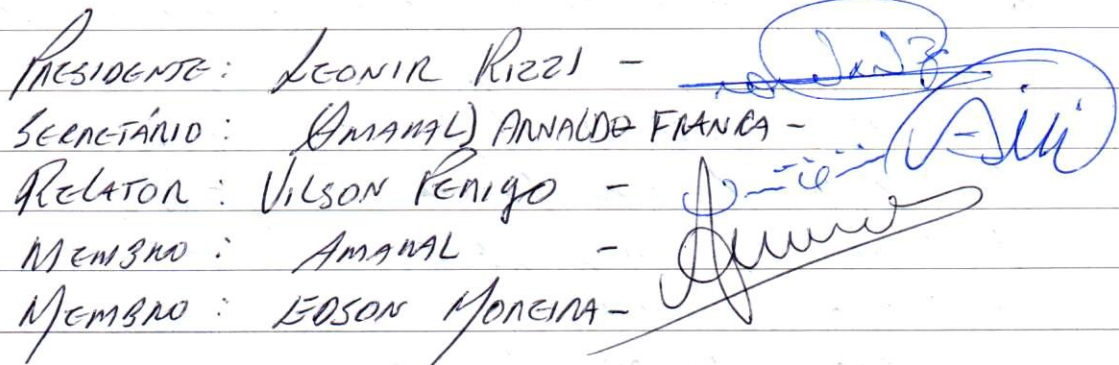 PRESIDENTE: LEONIR RIZZI -
SECRETÁRIO: (AMARAL) ARNALDO FRANÇA -
RELATOR: VILSON PERIGO -
MEMBRO: AMARAL -
MEMBRO: EDSON MOREIRA -